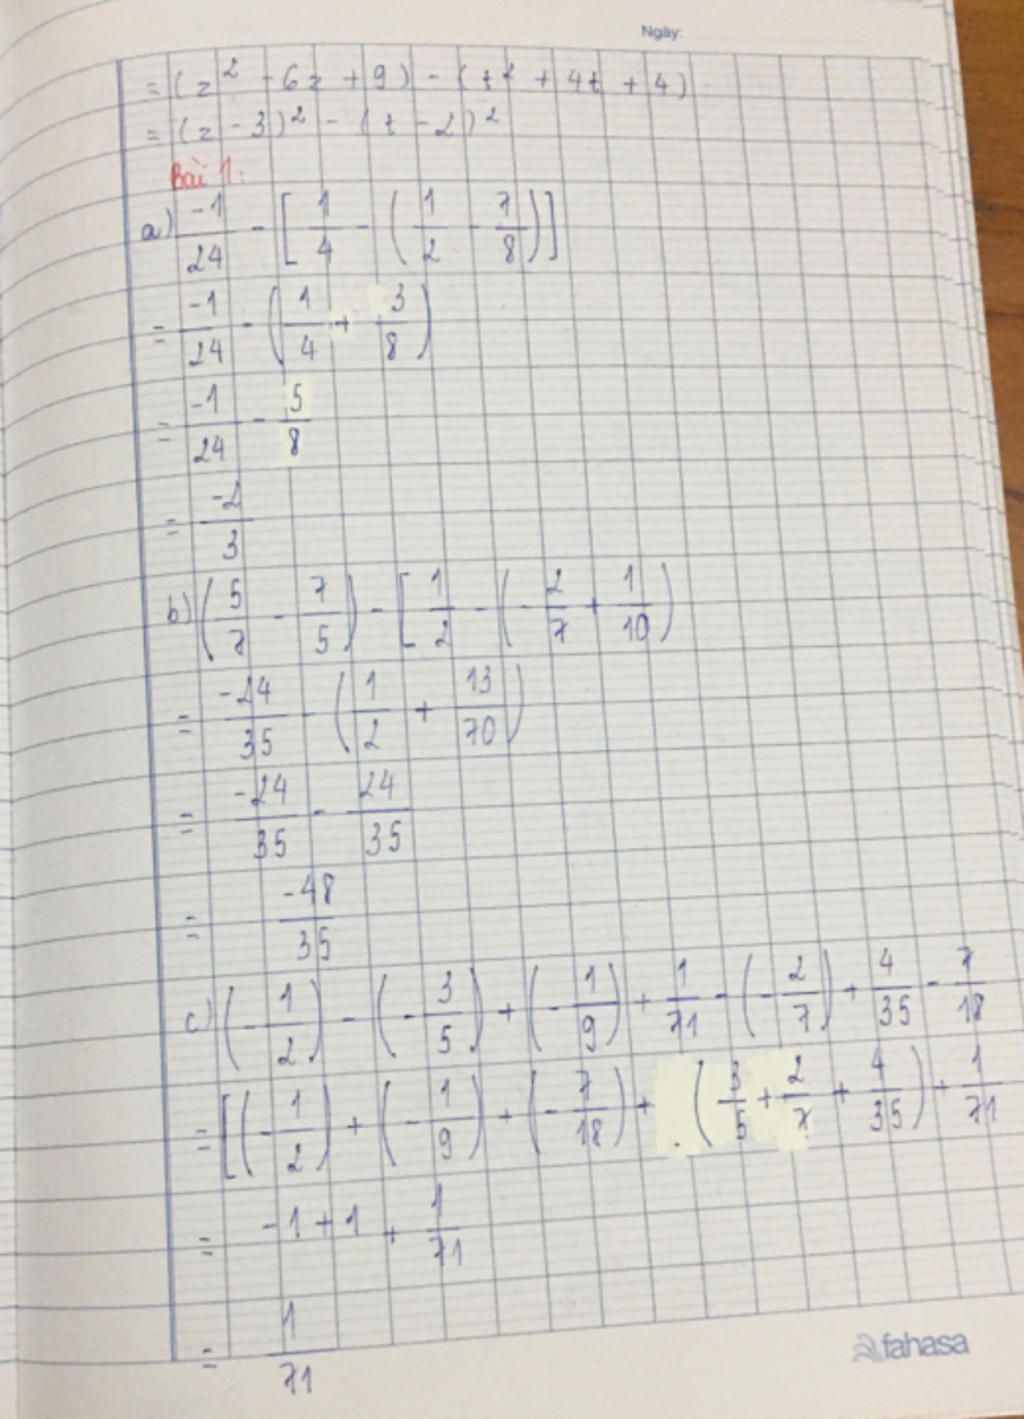 Ngày:
= (z² - 6z + 9) - (t² + 4t + 4)
= (z - 3)² - (t - 2)²
Bài 1:
a) -1/24 - [1/4 - (1/2 - 7/8)]
= -1/24 - (1/4 + 3/8)
= -1/24 - 5/8
= -2/3
b) (5/7 - 7/5) - [1/2 - (-2/7 + 1/10)
= -24/35 - (1/2 + 13/70)
= -24/35 - 24/35
= -48/35
c) (-1/2) - (-3/5) + (-1/9) + 1/71 - (-2/7) + 4/35 - 7/18
= [(-1/2) + (-1/9) + (-7/18) + (3/5 + 2/7 + 4/35) + 1/71
= -1 + 1 + 1/71
= 1/71
fahasa